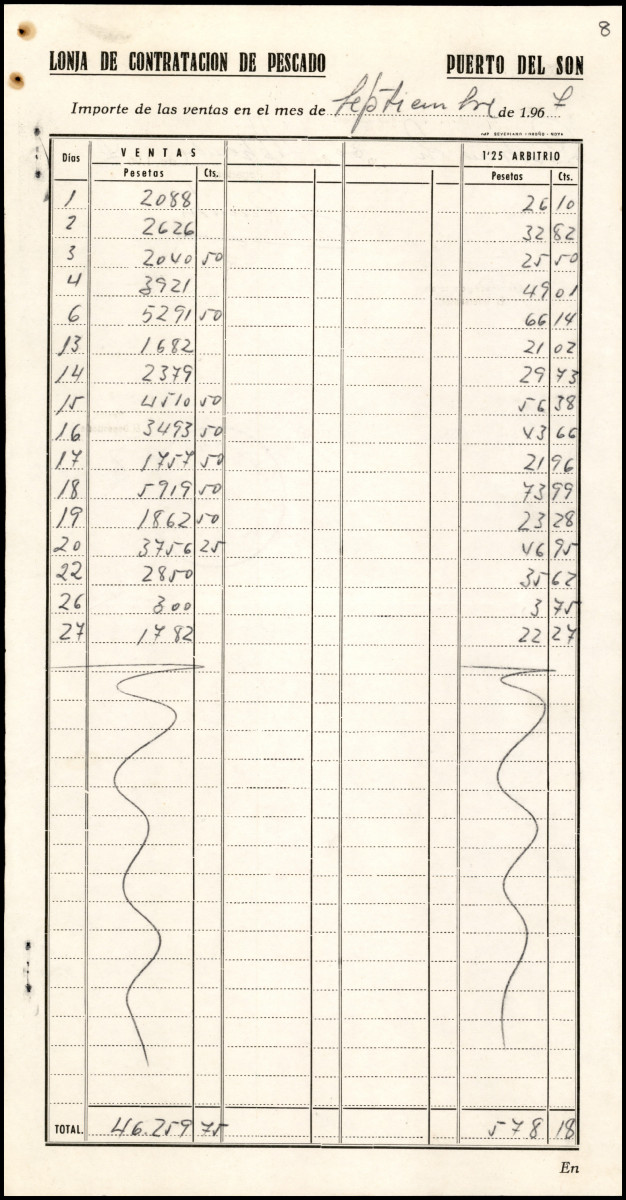 8
LONJA DE CONTRATACION DE PESCADO PUERTO DEL SON
Importe de las ventas en el mes de Septiembre de 1.967
Días VENTAS 1'25 ARBITRIO
Pesetas Cts. Pesetas Cts.
1 2088 26 10
2 2626 32 82
3 2040 50 25 50
4 3921 49 01
6 5291 50 66 14
13 1682 21 02
14 2379 29 73
15 4510 50 56 38
16 3493 50 43 66
17 1757 50 21 96
18 5919 50 73 99
19 1862 50 23 28
20 3756 25 46 95
22 2850 35 62
26 300 3 75
27 1782 22 27
TOTAL. 46.259 75 578 18
En